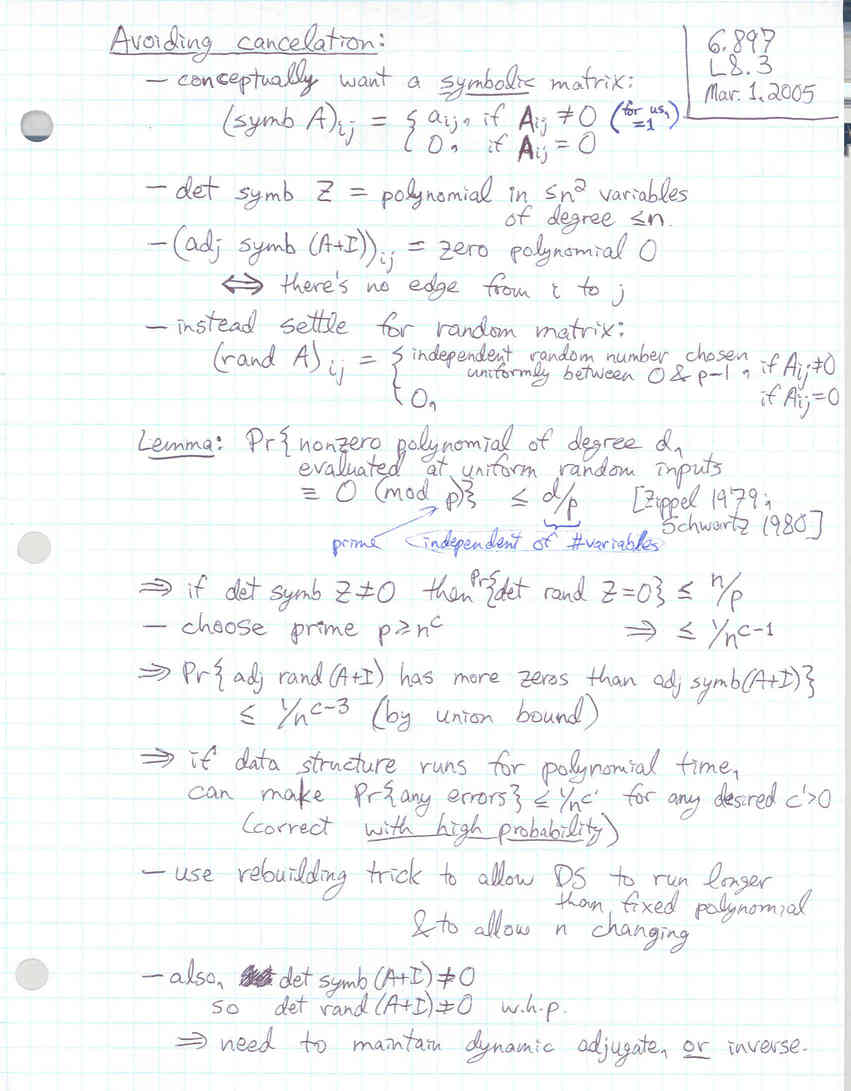 Avoiding cancelation:
6.897
L8.3
Mar. 1, 2005
— conceptually want a symbolic matrix:
(symb A)ij = { aij, if Aij ≠ 0 (for us, =1)
0, if Aij = 0
— det symb Z = polynomial in ≤n² variables
of degree ≤n.
— (adj symb (A+I))ij = zero polynomial 0
⇔ there's no edge from i to j
— instead settle for random matrix:
(rand A)ij = { independent random number chosen
uniformly between 0 & p-1, if Aij≠0
0, if Aij=0
Lemma: Pr{nonzero polynomial of degree d,
evaluated at uniform random inputs
≡ 0 (mod p)} ≤ d/p [Zippel 1979;
Schwartz 1980]
prime independent of #variables
⇒ if det symb Z≠0 then Pr{det rand Z=0} ≤ n/p
— choose prime p≥n^c ⇒ ≤ 1/n^c-1
⇒ Pr{adj rand (A+I) has more zeros than adj symb(A+I)}
≤ 1/n^c-3 (by union bound)
⇒ if data structure runs for polynomial time,
can make Pr{any errors} ≤ 1/n^c' for any desired c'>0
(correct with high probability)
— use rebuilding trick to allow DS to run longer
than fixed polynomial
& to allow n changing
— also, det symb (A+I)≠0
so det rand (A+I)≠0 w.h.p.
⇒ need to maintain dynamic adjugate, or inverse.